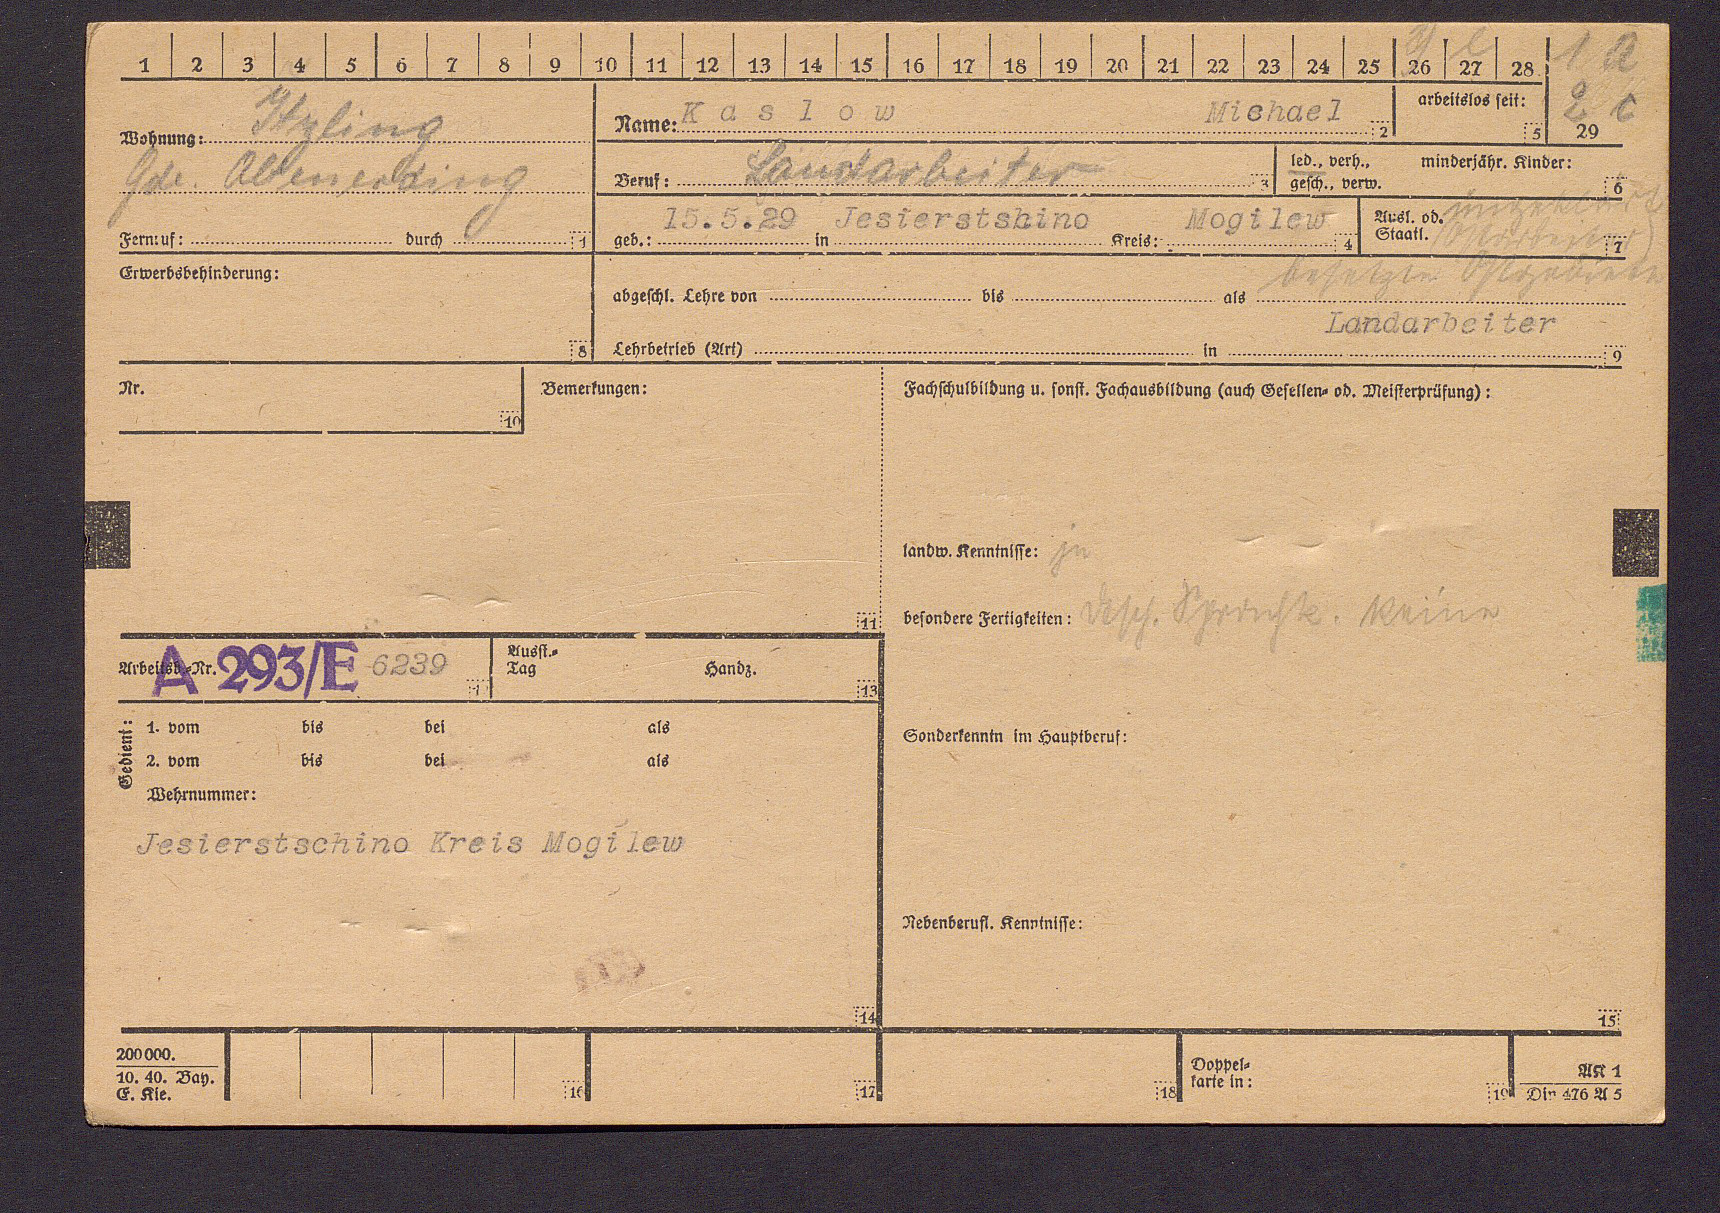 1 2 3 4 5 6 7 8 9 10 11 12 13 14 15 16 17 18 19 20 21 22 23 24 25 26 27 28
1 a
2 c
29
Wohnung: Itzling
Gde.
Fernruf: durch 1
Name: Kaslow Michael 2
arbeitslos seit: 5
Beruf: Landarbeiter 3
led., verh., gesch., verw.
minderjähr. Kinder: 6
geb.: 15.5.29 in Jesierstshino Kreis: Mogilew 4
Ausl. od. Staatl. ungeklärt 7
besetzte Ostgebiete
Erwerbsbehinderung: 8
abgeschl. Lehre von bis als
Landarbeiter
Lehrbetrieb (Art) in 9
Nr. 10
Bemerkungen: 11
Fachschulbildung u. sonst. Fachausbildung (auch Gesellen- od. Meisterprüfung):
landw. Kenntnisse: ja
besondere Fertigkeiten: dtsch. Sprachk. keine
Arbeitsb.-Nr. A 293/E 6239
Ausst.-Tag Handz. 13
Gedient:
1. vom bis bei als
2. vom bis bei als
Wehrnummer:
Jesierstschino Kreis Mogilew
14
Sonderkenntn im Hauptberuf:
Nebenberufl. Kenntnisse:
15
200000.
10. 40. Bay.
E. Kie.
16 17 18
Doppel-
karte in: 19
AK 1
Din 476 A 5